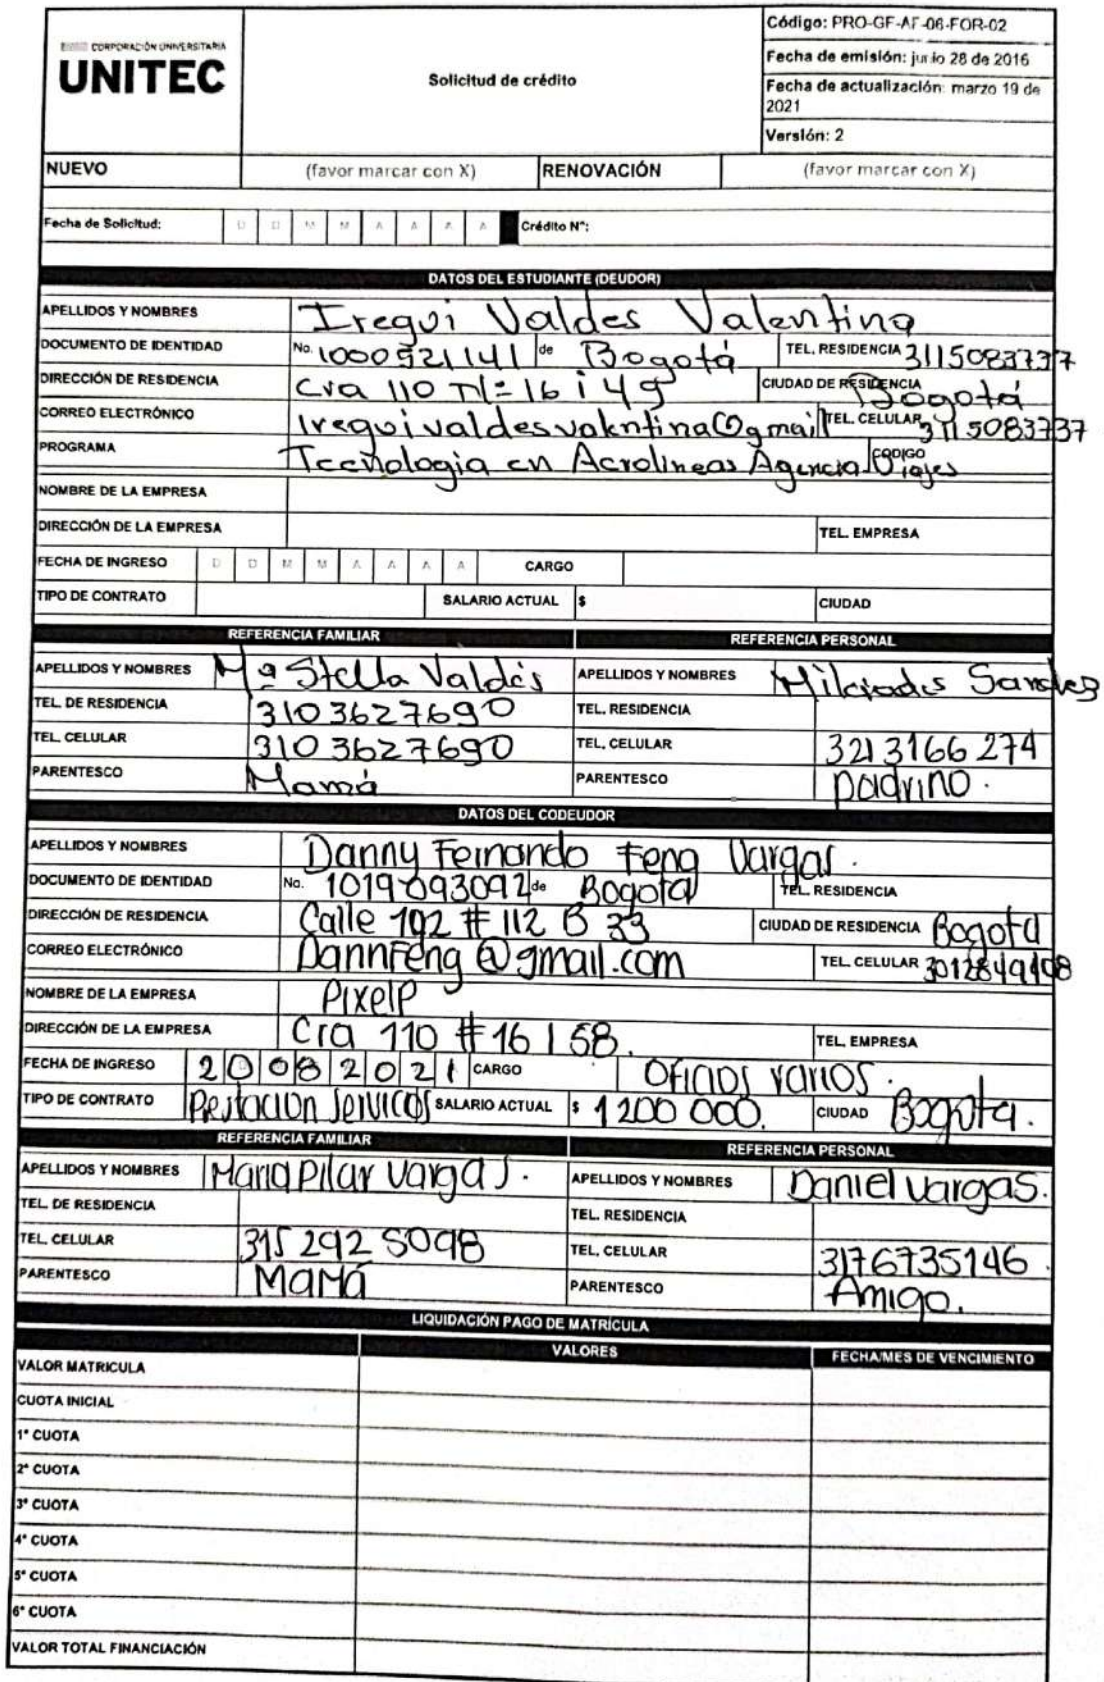 CORPORACIÓN UNIVERSITARIA
UNITEC
Solicitud de crédito
Código: PRO-GF-AF-06-FOR-02
Fecha de emisión: junio 28 de 2016
Fecha de actualización: marzo 19 de 2021
Versión: 2
NUEVO (favor marcar con X) RENOVACIÓN (favor marcar con X)
Fecha de Solicitud: D D M M A A A A Crédito N°:
DATOS DEL ESTUDIANTE (DEUDOR)
APELLIDOS Y NOMBRES Iregui Valdes Valentina
DOCUMENTO DE IDENTIDAD No. 1000521141 de Bogotá TEL. RESIDENCIA 3115083737
DIRECCIÓN DE RESIDENCIA Cra 110 N= 16 i 49 CIUDAD DE RESIDENCIA Bogotá
CORREO ELECTRÓNICO Ireguivaldesvalentina@gmail TEL. CELULAR 3115083737
PROGRAMA Tecnologia en Aerolineas Agencia Viajes CODIGO
NOMBRE DE LA EMPRESA
DIRECCIÓN DE LA EMPRESA TEL. EMPRESA
FECHA DE INGRESO D D M M A A A A CARGO
TIPO DE CONTRATO SALARIO ACTUAL $ CIUDAD
REFERENCIA FAMILIAR REFERENCIA PERSONAL
APELLIDOS Y NOMBRES Mª Stella Valdés APELLIDOS Y NOMBRES Milciades
TEL. DE RESIDENCIA 3103627690 TEL. RESIDENCIA
TEL. CELULAR 3103627690 TEL. CELULAR 3213166274
PARENTESCO Mamá PARENTESCO padrino.
DATOS DEL CODEUDOR
APELLIDOS Y NOMBRES Danny Fernando Feng Vargas.
DOCUMENTO DE IDENTIDAD No. 1019093092 de Bogota TEL. RESIDENCIA
DIRECCIÓN DE RESIDENCIA Calle 192 # 112 B 33 CIUDAD DE RESIDENCIA Bogota
CORREO ELECTRÓNICO DannFeng@gmail.com TEL. CELULAR
NOMBRE DE LA EMPRESA PixelP
DIRECCIÓN DE LA EMPRESA Cra 110 # 16 I 58. TEL. EMPRESA
FECHA DE INGRESO 2 0 0 8 2 0 2 1 CARGO Oficios varios.
TIPO DE CONTRATO Prestacion servicios SALARIO ACTUAL $ 1200 000. CIUDAD Bogota.
REFERENCIA FAMILIAR REFERENCIA PERSONAL
APELLIDOS Y NOMBRES Maria Pilar Vargas. APELLIDOS Y NOMBRES Daniel vargas.
TEL. DE RESIDENCIA TEL. RESIDENCIA
TEL. CELULAR 315 292 5098 TEL. CELULAR 3176735146.
PARENTESCO MaMá PARENTESCO Amigo.
LIQUIDACIÓN PAGO DE MATRÍCULA
VALORES FECHA/MES DE VENCIMIENTO
VALOR MATRICULA
CUOTA INICIAL
1° CUOTA
2° CUOTA
3° CUOTA
4° CUOTA
5° CUOTA
6° CUOTA
VALOR TOTAL FINANCIACIÓN